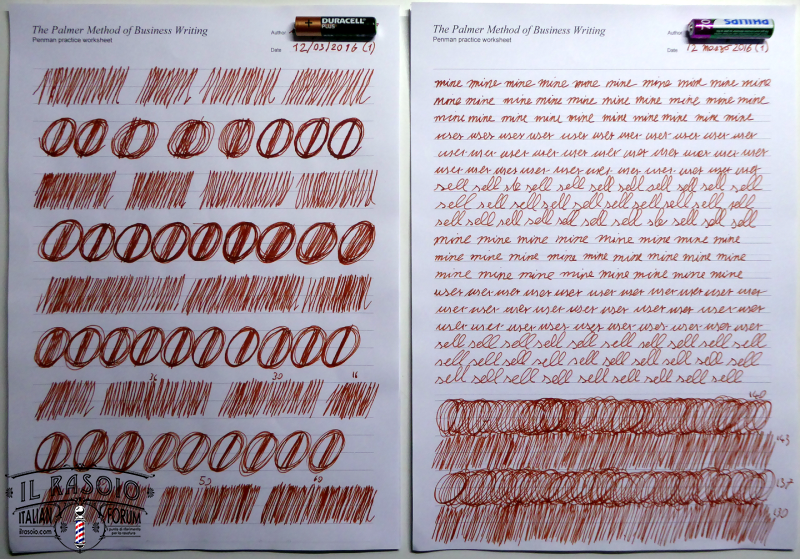 The Palmer Method of Business Writing
Penman practice worksheet
Author
Date 12/03/2016 (1)
DURACELL
PLUS
36 30 16
50 40
IL RASOIO
ITALIAN FORUM
ilrasoio.com
il punto di riferimento per la rasatura
The Palmer Method of Business Writing
Penman practice worksheet
Date 12 marzo 2016 (1)
PHILIPS
mine mine mine mine mine mine mine mine mine mine
mine mine mine mine mine mine mine mine mine mine
mine mine mine mine mine mine mine mine mine mine
user user user user user user user user user user user
user user user user user user user user user user user
user user user user user user user user user user user
sell sell sle sell sell sell sell sell sell sell sell
sell sell sell sell sell sell sell sell sell sell
sell sell sell sell sell sell sell sell sell sell
mine mine mine mine mine mine mine mine
mine mine mine mine mine mine mine mine mine
mine mine mine mine mine mine mine mine
user user user user user user user user user user user
user user user user user user user user user user
user user user user user user user user user user user
sell sell sell sell sell sell sell sell sell sell
sell sell sell sell sell sell sell sell sell sell
sell sell sell sell sell sell sell sell sell
140
143
137
130